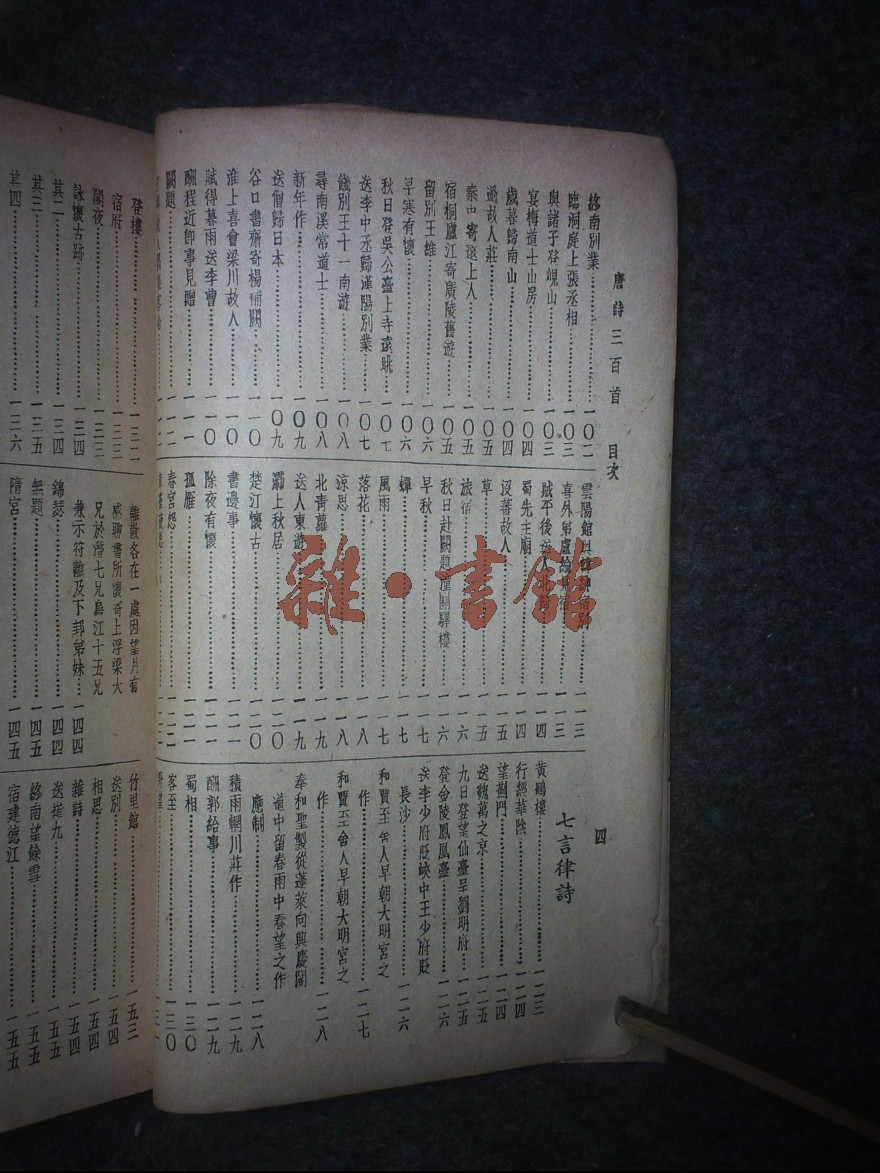 唐詩三百首 目次
四
終南別業……一〇二
臨洞庭上張丞相……一〇三
與諸子登峴山……一〇三
宴梅道士山房……一〇四
歲暮歸南山……一〇四
過故人莊……一〇五
秦中寄遠上人……一〇五
宿桐廬江寄廣陵舊遊……一〇五
留別王維……一〇六
早寒有懷……一〇六
秋日登吳公臺上寺遠眺……一〇七
送李中丞歸漢陽別業……一〇七
餞別王十一南遊……一〇八
尋南溪常道士……一〇八
新年作……一〇九
送僧歸日本……一〇九
谷口書齋寄楊補闕……一一〇
淮上喜會梁川故人……一一〇
賦得暮雨送李曹……一一〇
酬程近卽事見贈……一一一
闕題……一一二
雲陽館與韓紳宿別……一一三
喜外弟盧綸見宿……一一三
賊平後送人北歸……一一四
蜀先主廟……一一四
沒蕃故人……一一五
草……一一五
旅宿……一一六
秋日赴闕題潼關驛樓……一一六
早秋……一一七
蟬……一一七
風雨……一一七
落花……一一八
涼思……一一八
北青蘿……一一九
送人東遊……一一九
灞上秋居……一二〇
楚江懷古……一二〇
書邊事……一二一
除夜有懷……一二一
孤雁……一二一
春宮怨……一二二
七言律詩
黃鶴樓……一二三
行經華陰……一二四
望薊門……一二四
送魏萬之京……一二五
九日登望仙臺呈劉明府……一二五
登金陵鳳凰臺……一二六
送李少府貶峽中王少府貶
長沙……一二六
和賈至舍人早朝大明宮之
作……一二七
和賈至舍人早朝大明宮之
作……一二八
奉和聖製從蓬萊向興慶閣
道中留春雨中春望之作
應制……一二八
積雨輞川莊作……一二九
酬郭給事……一二九
蜀相……一三〇
客至……一三〇
登樓……一三二
宿府……一三三
閣夜……一三三
詠懷古跡……一三四
其二……一三四
其三……一三五
其四……一三六
離散各在一處因望月有
感聊書所懷寄上浮梁大
兄於潛七兄烏江十五兄
兼示符離及下邽弟妹……一四四
錦瑟……一四四
無題……一四五
隋宮……一四五
竹里館……一五三
送別……一五四
相思……一五四
雜詩……一五四
送崔九……一五五
終南望餘雪……一五五
宿建德江……一五五
雜·書館